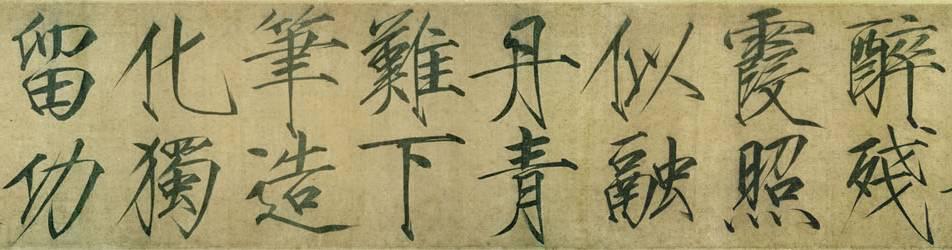 醉残
霞照
似融
丹青
難下
筆造
化獨
留功